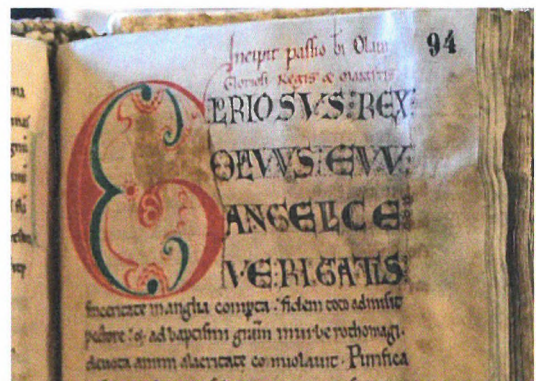 Incipit passio bi Olaui
Gloriosi Regis & martiris
94
GLRIOSVS: REX
OLAVVS: EVV
ANGELICE
VERITATIS
sinceritate in anglia comp̄ta. fidem toto admisit
pectore: & ad baptismi gr̄am in urbe rothomagi.
deuota animi alacritate conuolauit. Purifica